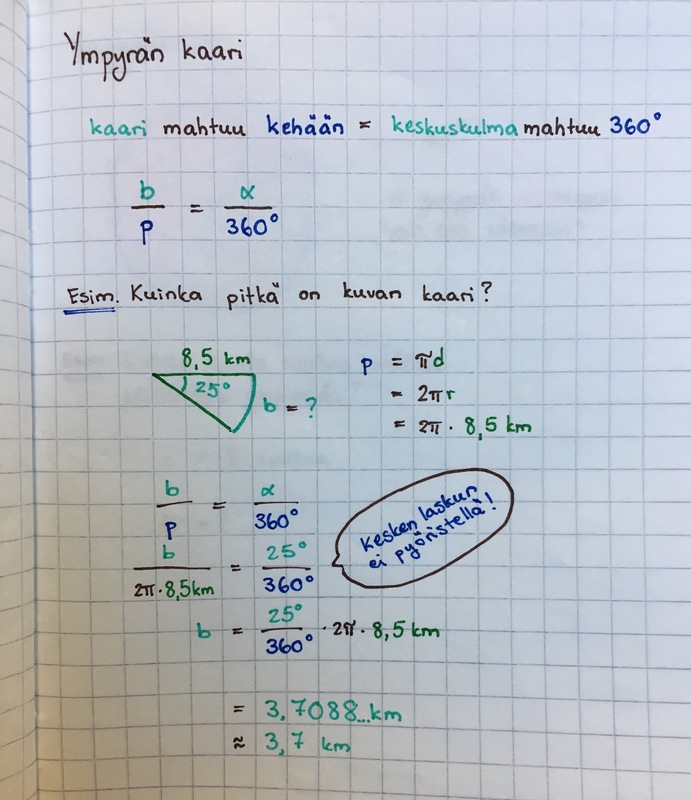 Ympyrän kaari
kaari mahtuu kehään = keskuskulma mahtuu 360°
b/p = α/360°
Esim. Kuinka pitkä on kuvan kaari?
8,5 km
25°
b = ?
p = πd
= 2πr
= 2π · 8,5 km
b/p = α/360°
Kesken laskun
ei pyöristellä!
b/2π·8,5km = 25°/360°
b = 25°/360° · 2π · 8,5 km
= 3,7088...km
≈ 3,7 km